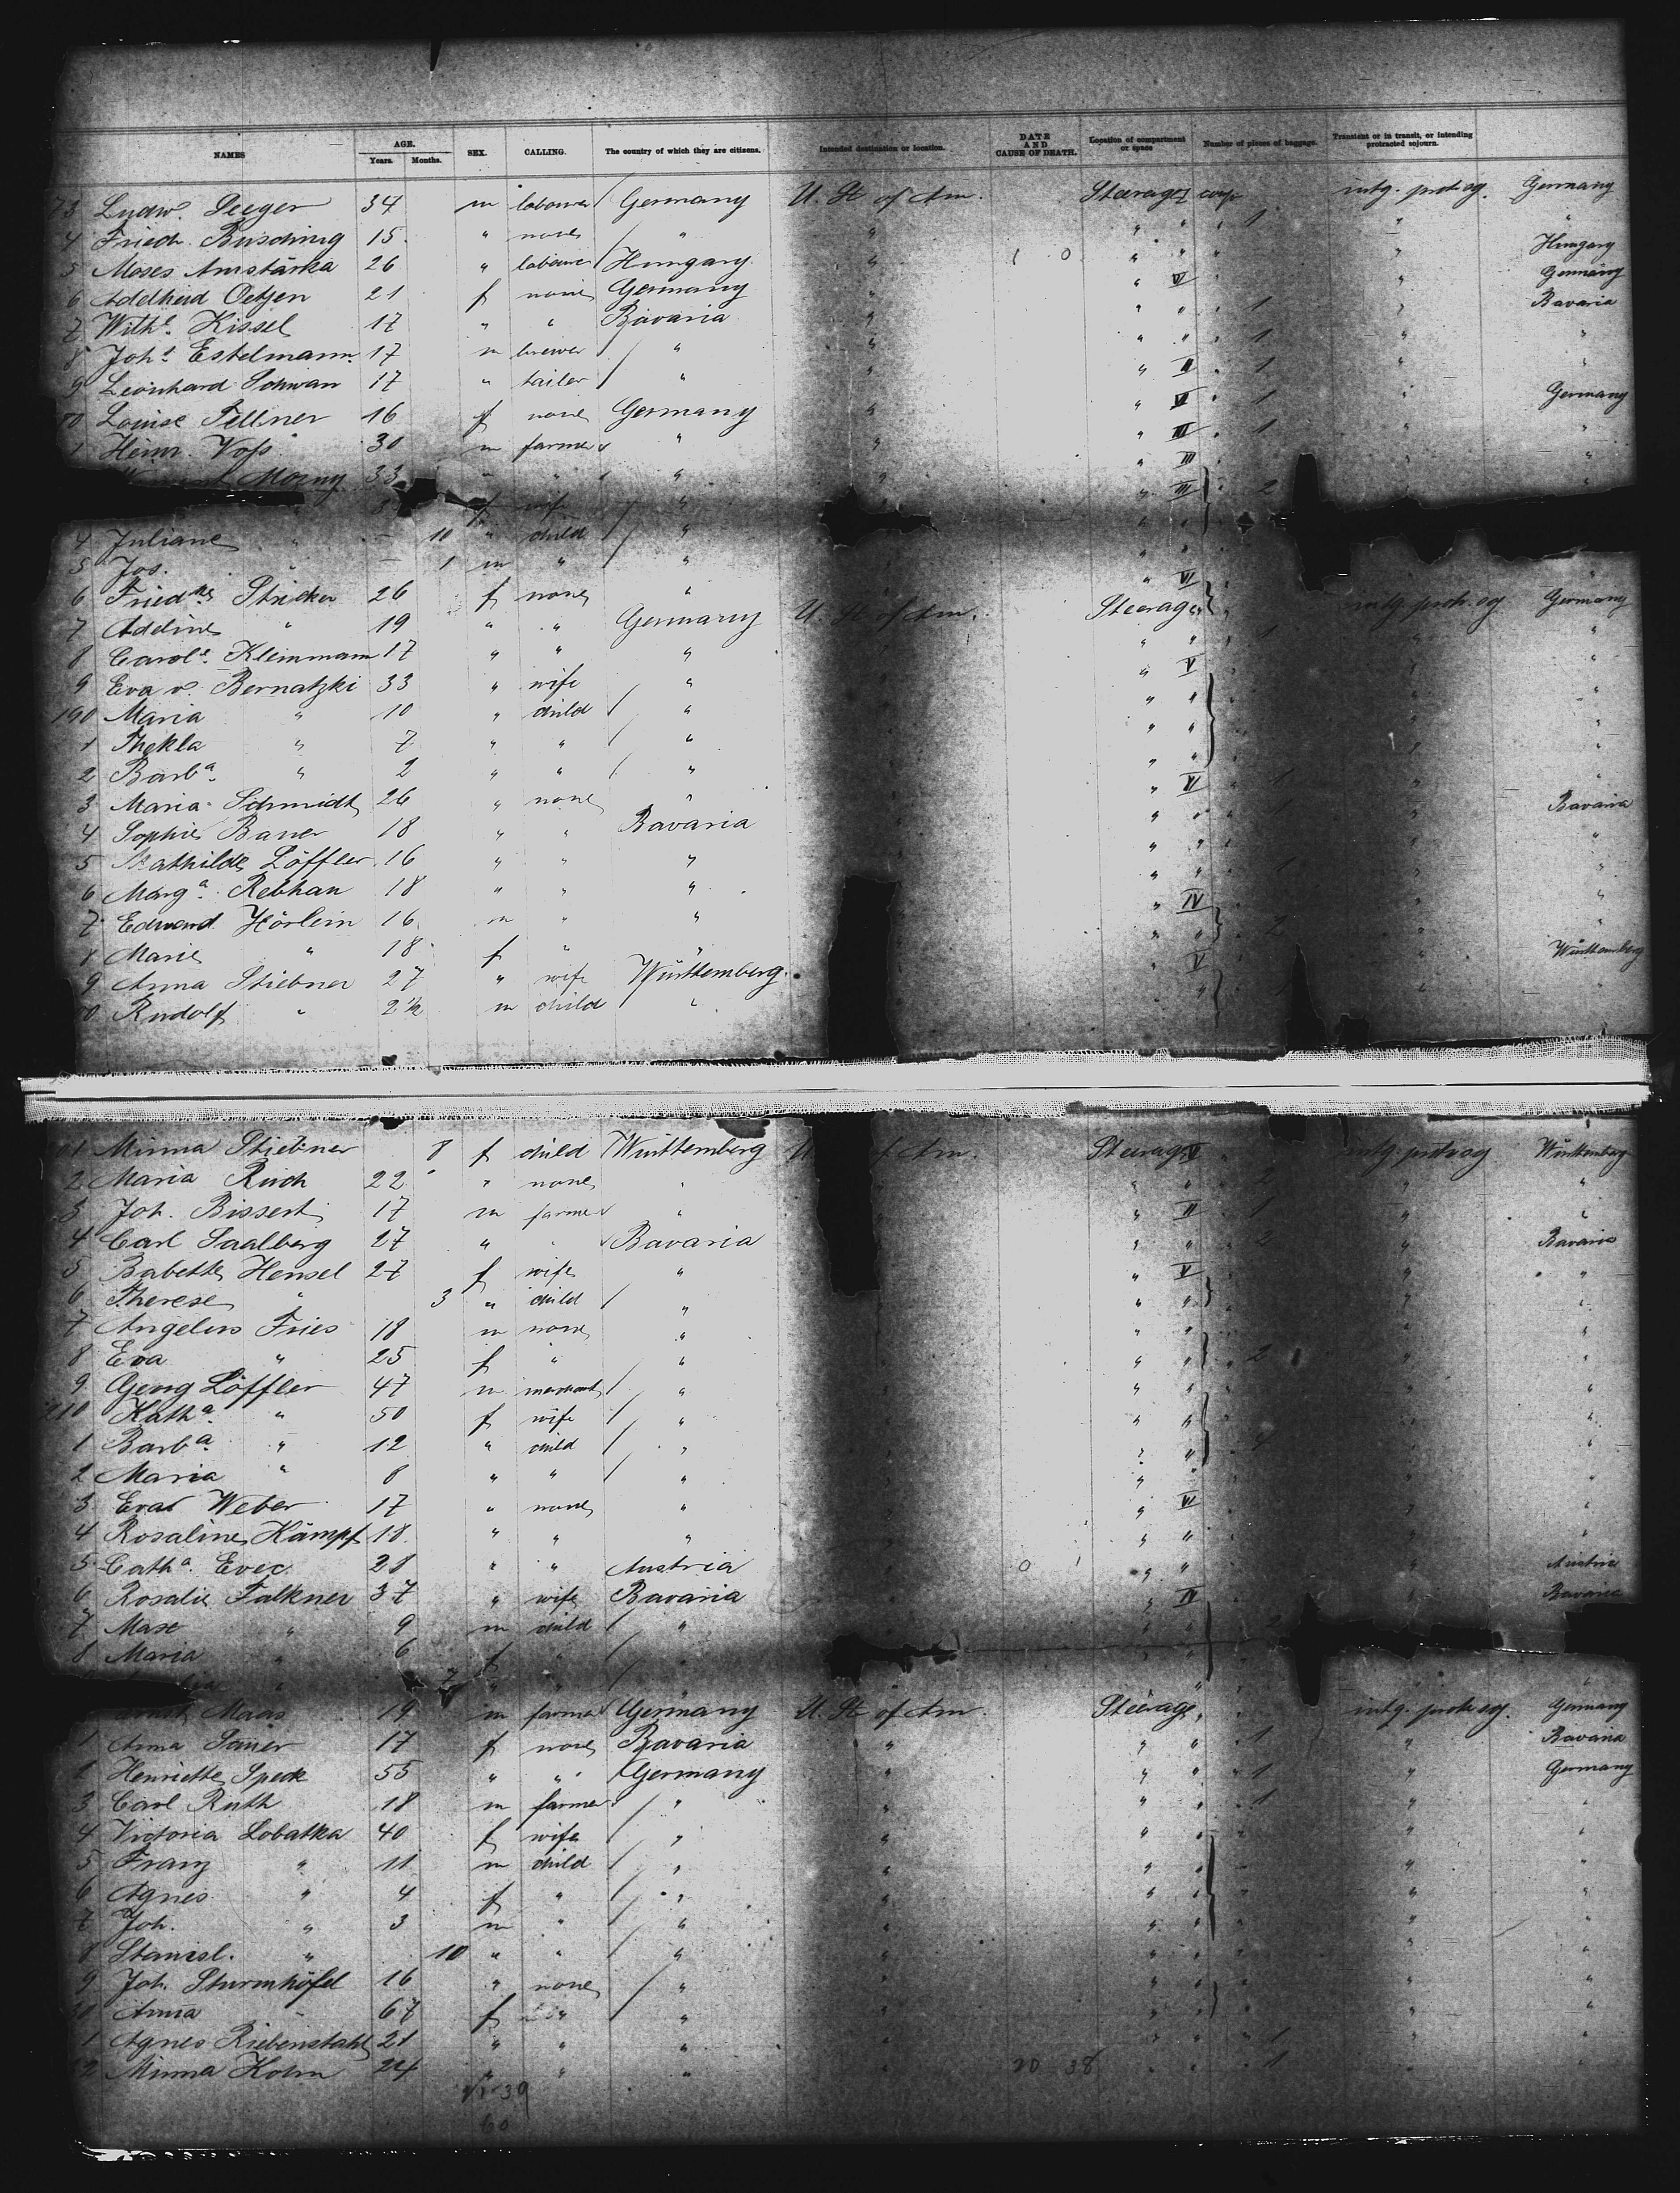 NAMES AGE. Years. Months. SEX. CALLING. The country of which they are citizens. Intended destination or location. DATE AND CAUSE OF DEATH. Location of compartment or space Number of pieces of baggage. Transient or in transit, or intending protracted sojourn.
73 Ludw. Seeger 34 m labourer Germany U. St of Am. Steerage I comp intg. prot. sg. Germany
4 Friedr. Büsching 15 " none " " " " " 1 " "
5 Moses Amstärka 26 " labourer Hungary " 1 0 " " " " Hungary
6 Adelheid Oetjen 21 f none Germany " " VI " Germany
7 Wilh. Kissel 17 " " Bavaria " " " " 1 " Bavaria
8 Joh. Estelmann 17 m brewer " " " " " 1 " "
9 Leonhard Schwan 17 " tailer " " " II " 1 " "
Louise Fellner 16 f none Germany " " VI " 1 " Germany
1 Heinr. Voss 30 m farmer " " " III " 1 " "
Morny 33 " " " " " III " "
f wife " " " 2
4 Juliane " - 10 " child " " "
5 Jos. " - 1 m " " " "
6 Friedke Stricker 26 f none " " VI "
7 Adeline " 19 " " Germany U. St of Am. Steerage " intg. prot. sg Germany
8 Carol. Kleinmann 17 " " " " " 1 " "
9 Eva v. Bernatzki 33 " wife " " V " "
190 Maria " 10 " child " " " " "
1 Thekla " 7 " " " " " " "
2 Barba " 2 " " " " " " "
3 Maria Schmidt 26 " none " " VI " 1 " "
4 Sophie Bauer 18 " " Bavaria " " 1 " Bavaria
5 Mathilde Löffler 16 " " " " " " "
6 Marga Rebhan 18 " " " " " 1 " "
7 Edward Hörlein 16 m " " " IV " "
8 Marie " 18 f " " " " 2 " "
9 Anna Stiebner 27 " wife Württemberg " V " Württemberg
Rudolf " 2½ m child " " " " "
1 Minna Stiebner 8 f child Württemberg of Am. Steerage V intg. prot. sg Württemberg
2 Maria Ruch 22 " none " " " " "
3 Joh. Bissert 17 m farmer " " II 1 " "
4 Carl Saalberg 27 " " Bavaria " " 2 " Bavaria
5 Babette Hensel 27 f wife " " V " "
6 Therese " 3 " child " " " " "
7 Angelus Fries 18 m none " " " " "
8 Eva " 25 f " " " " 2 " "
9 Georg Löffler 47 m merchant " " " " "
210 Katha " 50 f wife " " " " "
1 Barba " 12 " child " " " " "
2 Maria " 8 " " " " " " "
3 Eva Weber 17 " none " " VI " "
4 Rosaline Kämpf 18 " " " " " " "
5 Catha. Evec 28 " " Austria 0 1 " " " Austria
6 Rosalie Falkner 37 " wife Bavaria " IV " Bavaria
7 Max " 9 m child " " " 2
8 Maria " 6 f " "
7 " " " "
Maas 19 m farmer Germany U. St of Am Steerage " intg. prot. sg. Germany
1 Anna Sauer 17 f none Bavaria " " " 1 " Bavaria
2 Henriette Speck 55 " " Germany " " " 1 " Germany
3 Carl Ruth 18 m farmer " " " " 1 " "
4 Victoria Lobatka 40 f wife " " " " " "
5 Franz " 11 m child " " " " " "
6 Agnes " 4 f " " " " " " "
7 Joh. " 3 m " " " " " " "
8 Stanisl. " 10 " " " " " " " "
9 Joh. Sturmhöfel 16 " none " " " " " "
30 Anna " 67 f " " " " " " "
1 Agnes Riebenstahl 21 " " " " " " 1 " "
2 Minna Kohn 24 " " " " 20 38 " " 1 " "
21-39
60